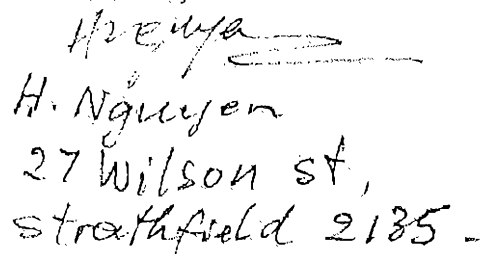 H. Nguyen
27 Wilson st,
strathfield 2135.